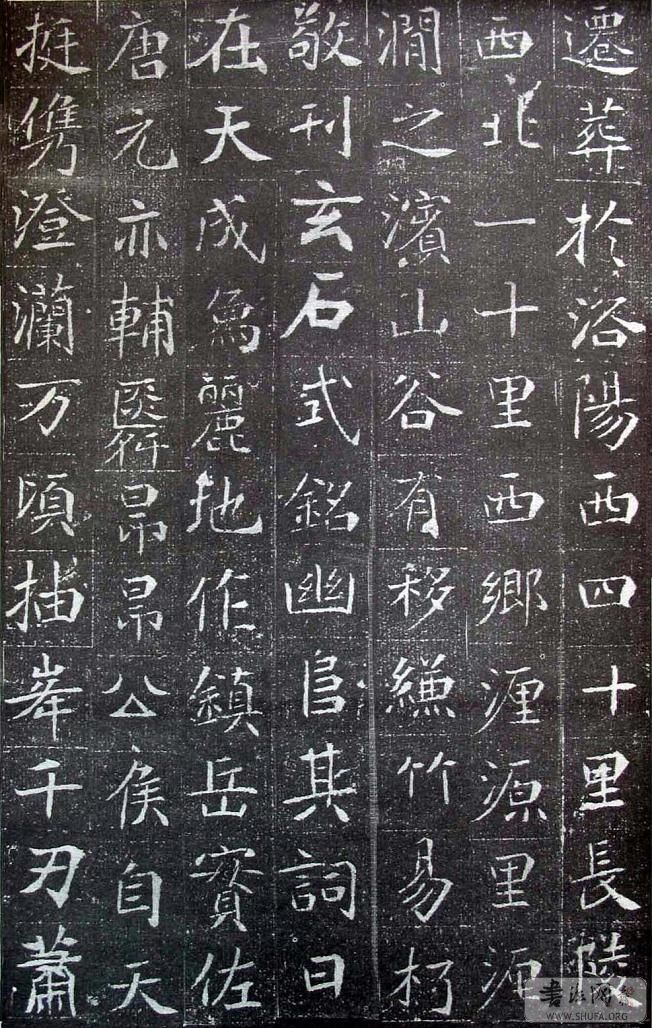 遷葬於洛陽西四十里長陵
西北一十里西鄉瀍源里源
澗之濱山谷有移縑竹易朽
敬刊玄石式銘幽其詞曰
在天成為麗地作鎮岳賓佐
唐元亦輔昂昂公侯自天
挺儁澄瀾万頃插峯千刃蕭
WWW.SHUFA.ORG